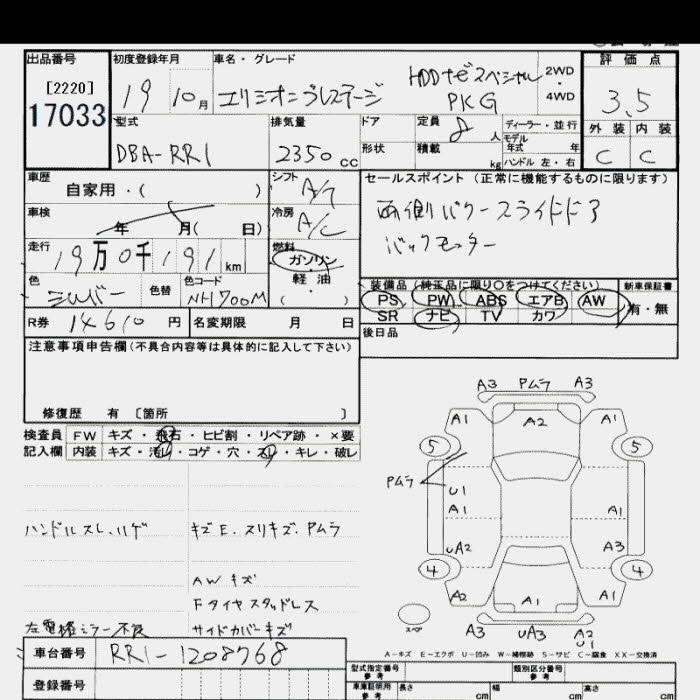 出品番号
[2220]
17033
初度登録年月
19 10月
車名・グレード
エリシオンプレステージ HDDナビスペシャル
PKG
2WD
4WD
評価点
3.5
外装 内装
C C
型式
DBA-RR1
排気量
2350 cc
ドア
形状
定員 8 人
積載 kg
ディーラー・並行
モデル
年式 年
ハンドル 左・右
車歴
自家用・( )
シフト A/T
車検
年 月( 日)
冷房 A/C
走行
19万0千191km
燃料
ガソリン
軽・油
( )
色
シルバー
色替
色コード
NH700M
R券 14610 円
名変期限 月 日
セールスポイント(正常に機能するものに限ります)
両側パワースライドドア
バックモニター
装備品(純正品に限り○をつけてください)
PS PW ABS エアB AW
SR ナビ TV カワ
新車保証書
有・無
後日品
注意事項申告欄(不具合内容等は具体的に記入して下さい)
修復歴 有 〔箇所 〕
検査員
記入欄
FW キズ・飛石・ヒビ割・リペア跡・×要
内装 キズ・汚レ・コゲ・穴・スレ・キレ・破レ
ハンドルスレ、ハゲ
キズE.スリキズ.Pムラ
AWキズ
Fタイヤスタッドレス
左電格ミラー不良
サイドカバーキズ
A3 Pムラ A3
A1 A2 A1
5 5
Pムラ
U1
A1 A1
UA2 A3
4 4
A2 A1 A2
スペア
A3 UA3 A2
U1
A-キズ E-エクボ U-凹み W-補修跡 S-サビ C-腐食 XX-交換済
車台番号 RR1-1208768
登録番号
型式指定番号
参考
類別区分番号
参考
車庫証明用
参考
長さ cm
幅 cm
高さ cm